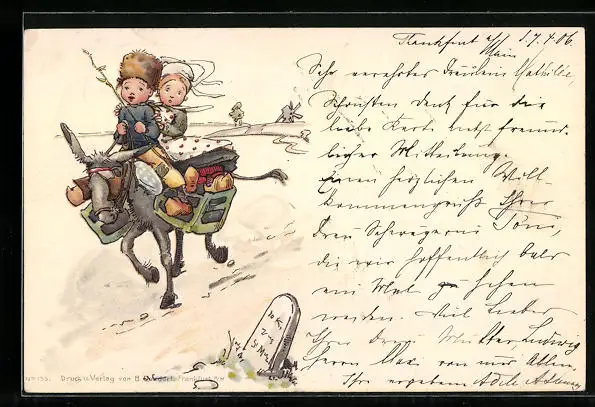 Frankfurt a/Main d. 7. 4. 06.
Sehr verehrtes Fräulein Mathilde
Schönsten Dank für die
liebe Karte nebst freund-
licher Mitteilung.
Einen herzlichen Will-
kommengruß Ihrer
Frau Schwägerin Toni,
die wir hoffentlich bald
ein Mal zu sehen
werden. Viel Liebes
Ihrer Mutter, Ludwig
Herrn Max von uns Allen.
Ihre ergebene Adele
No 153. Druck u. Verlag von B. Frankfurt a/M